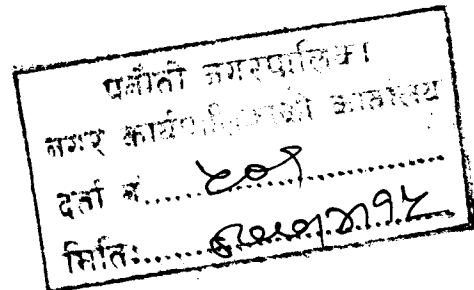 पनौती नगरपालिका
नगर कार्यपालिकाको कार्यालय
दर्ता नं.....
मितिः.....